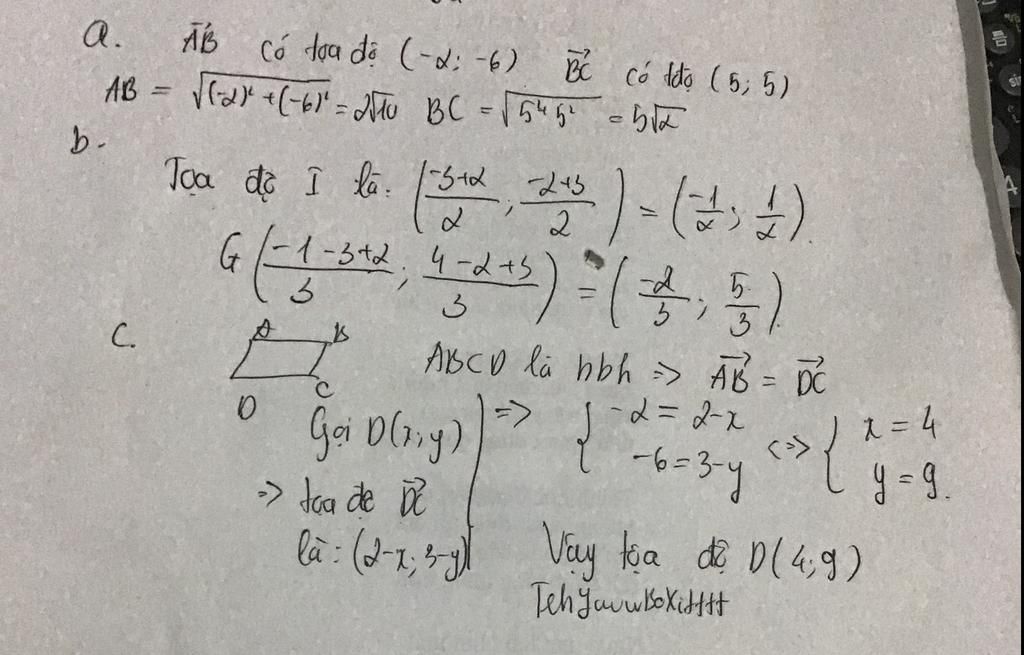 a. $\vec{AB}$ có tọa độ (-2; -6) $\vec{BC}$ có tđộ (5; 5)
AB = $\sqrt{(-2)^2+(-6)^2}$ = 2√10 BC = $\sqrt{5^2 5^2}$ = 5√2
b.
Tọa độ I là: $\left(\frac{-3+2}{2}; \frac{-2+3}{2}\right) = \left(\frac{-1}{2}; \frac{1}{2}\right)$.
G $\left(\frac{-1-3+2}{3}; \frac{4-2+3}{3}\right) = \left(\frac{-2}{3}; \frac{5}{3}\right)$.
c. A B
D C
ABCD là hbh => $\vec{AB}$ = $\vec{DC}$
Gọi D(x; y)
=> tọa độ $\vec{DC}$
là: (2-x; 3-y)
=> { -2 = 2-x <=> { x = 4
-6 = 3-y y = 9.
Vậy tọa độ D(4; 9)